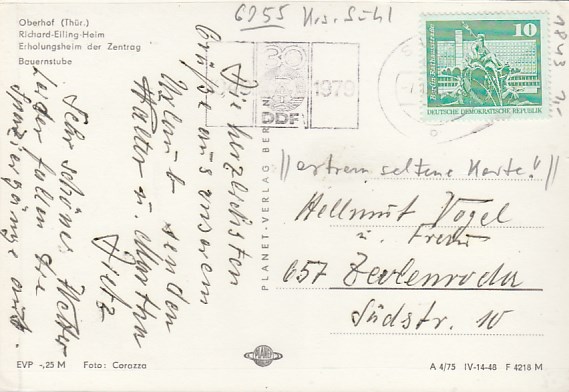 Oberhof (Thür.)
Richard-Eiling-Heim
Erholungsheim der Zentrag
Bauernstube
6055 Krs. Suhl
30
1979
DDR
10
Berlin, Rathausstrasse
DEUTSCHE DEMOKRATISCHE REPUBLIK
1843
Die herzlichsten
Grüße aus unserem
Urlaub senden
Walter u. Marta
Dietz
Sehr schönes Wetter
leider fallen die
Spaziergänge aus.
PLANET-VERLAG BERLIN
//extrem seltene Karte!!//
Hellmut Vogel
u. Frau
657 Zeulenroda
Südstr. 10
EVP -,25 M Foto: Carozza
PLANET
A 4/75 IV-14-48 F 4218 M